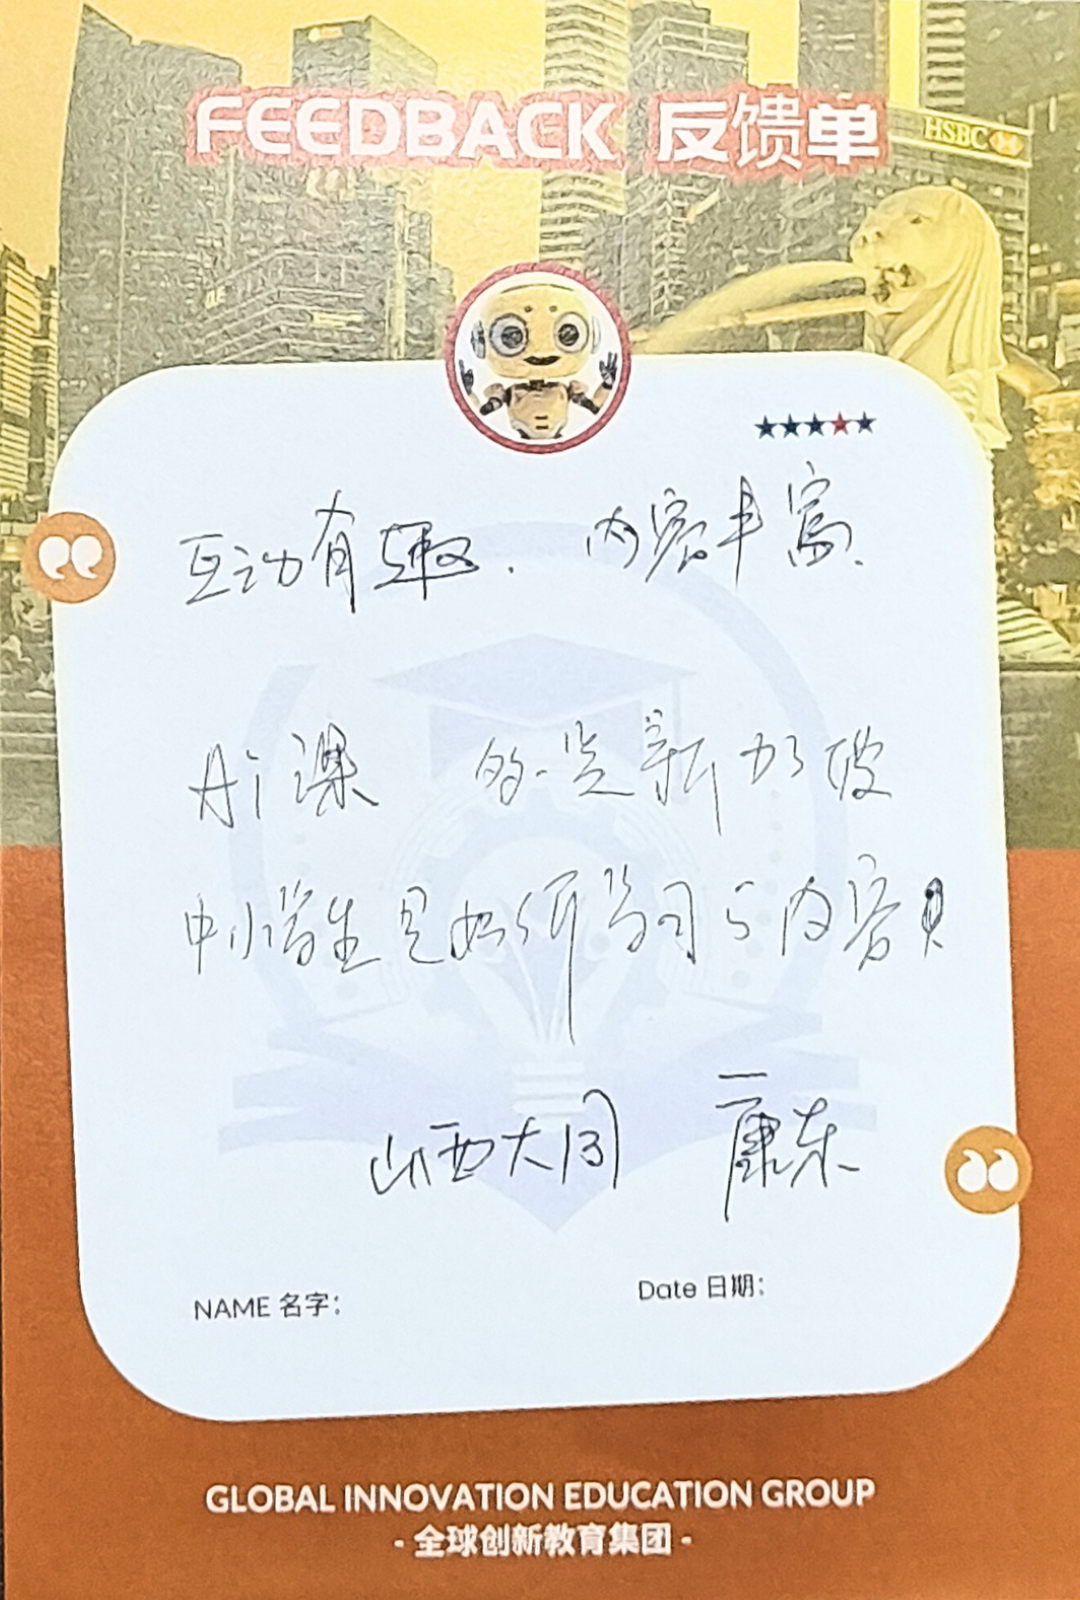 FEEDBACK 反馈单
HSBC
互动有趣. 内容丰富.
Ai课 的是新加坡
中小学生是如何学习与内容
山西大同 康东
NAME 名字:
Date 日期:
GLOBAL INNOVATION EDUCATION GROUP
- 全球创新教育集团 -